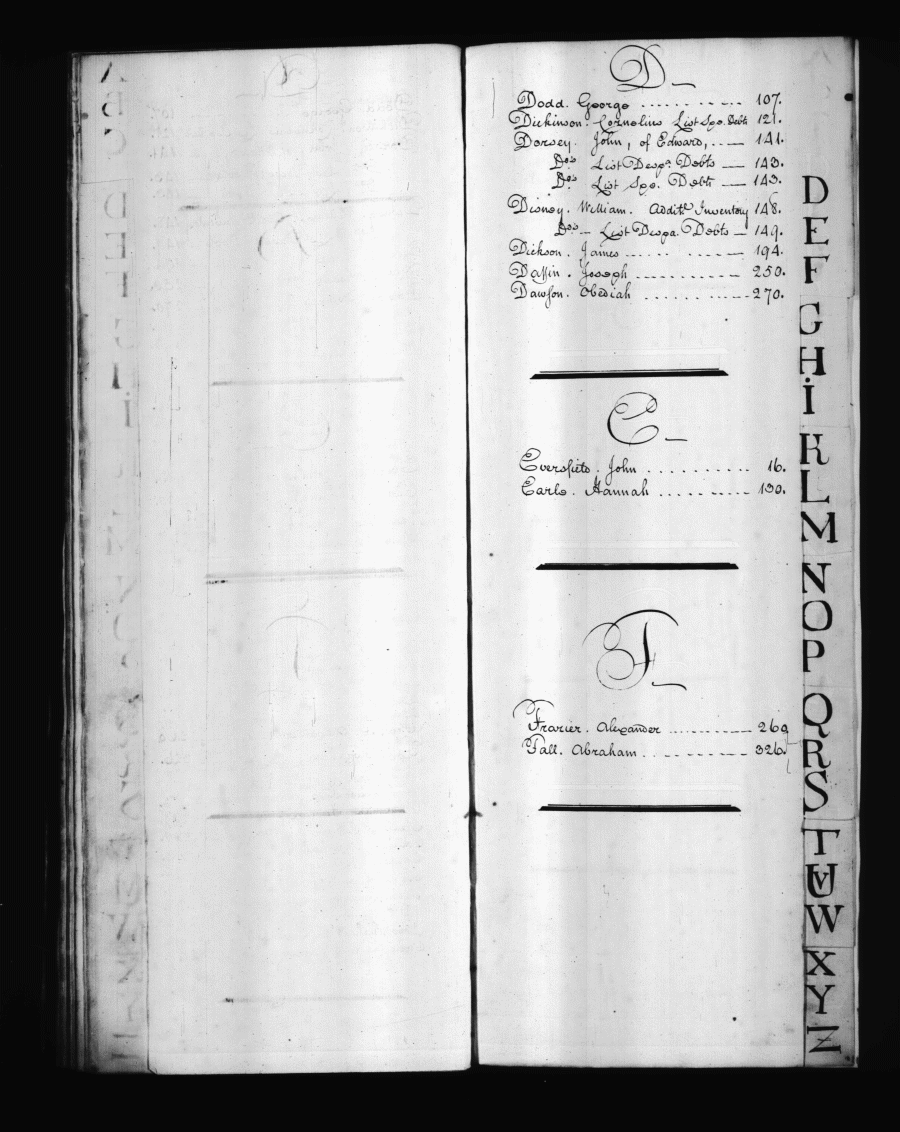 D
Dodd. George 107.
Dickinson. Cornelius List Spe. Debts 121.
Dorsey. John, of Edward, 141.
Do. List Despa. Debts 143.
Do. List Spe. Debts 143.
Disney. William. Additl. Inventory 148.
Do. List Despa. Debts 149.
Dickson. James 194.
Daffin. Joseph 250.
Dawson. Obediah 270.
E
Eversfield. John 16.
Earle. Hannah 130.
F
Frazier. Alexander 269
Fall. Abraham 326
D
E
F
G
H
I
K
L
M
N
O
P
Q
R
S
T
UV
W
X
Y
Z